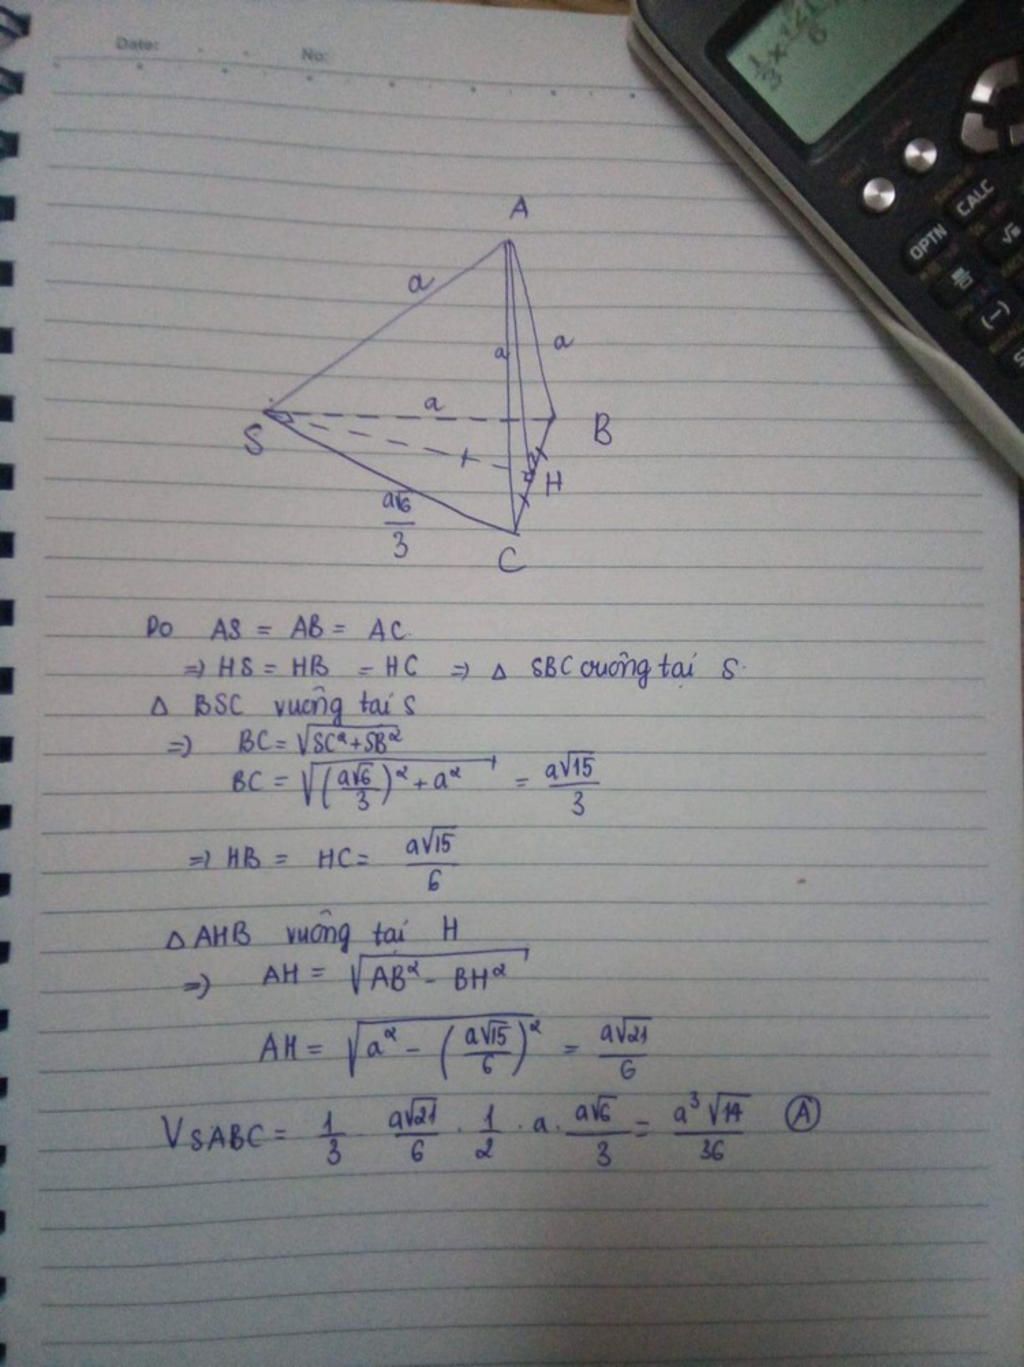 Date: No:
1/3 × √21/6
A
a
a
a
a
S
B
H
a√6/3
C
OPTN CALC
Do AS = AB = AC
=> HS = HB = HC => Δ SBC vuông tại S.
Δ BSC vuông tại S
=> BC = √(SC² + SB²)
BC = √((a√6/3)² + a²) = a√15/3
=> HB = HC = a√15/6
Δ AHB vuông tại H
=> AH = √(AB² - BH²)
AH = √(a² - (a√15/6)²) = a√21/6
VSABC = 1/3 a√21/6 . 1/2 . a . a√6/3 = a³√14/36 Ⓐ